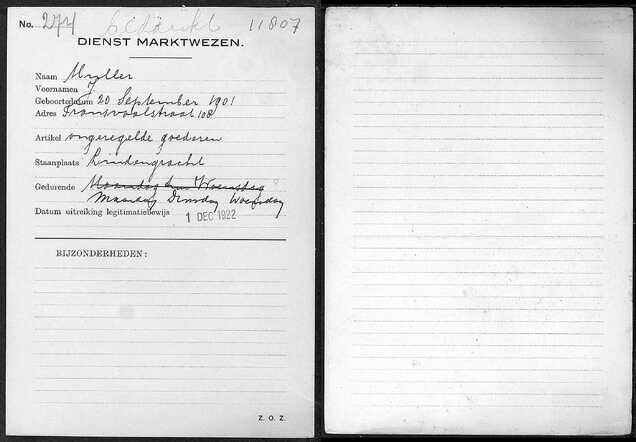 No. 274 bedankt 11807
DIENST MARKTWEZEN.
Naam Muller
Voornamen J
Geboortedatum 20 September 1901
Adres Transvaalstraat 108
Artikel ongeregelde goederen
Staanplaats Lindengracht
Gedurende Maandag Woensdag
Maandag Dinsdag Woensdag
Datum uitreiking legitimatiebewijs 1 DEC 1922
BIJZONDERHEDEN:
Z. O. Z.